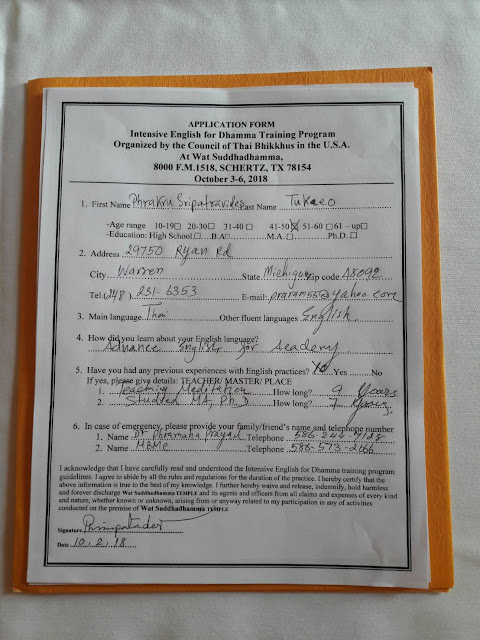 APPLICATION FORM
Intensive English for Dhamma Training Program
Organized by the Council of Thai Bhikkhus in the U.S.A.
At Wat Suddhadhamma,
8000 F.M.1518, SCHERTZ, TX 78154
October 3-6, 2018
1. First Name Phrakru Sripatravides Last Name Tukaeo
-Age range 10-19☐ 20-30☐ 31-40☐ 41-50☒ 51-60☐ 61 – up☐
-Education: High School☐ B.A☐ M.A.☐ Ph.D.☐
2. Address 29750 Ryan Rd
City Warren State Michigan Zip code 48092
Tel.(248) 231-6353 E-mail: @yahoo.com
3. Main language Thai Other fluent languages English
4. How did you learn about your English language?
Advance English for Academy
5. Have you had any previous experiences with English practices? Yes No
If yes, please give details: TEACHER/ MASTER/ PLACE
1. Teaching Meditation How long? 9 Years
2. Studded MA, Ph.D How long? 7 Years,
6. In case of emergency, please provide your family/friend's name and telephone number
1. Name Dr Phramaha Prayad Telephone 586-244-7128
2. Name Telephone 586-573-2666
I acknowledge that I have carefully read and understood the Intensive English for Dhamma training program
guidelines. I agree to abide by all the rules and regulations for the duration of the practice. I hereby certify that the
above information is true to the best of my knowledge. I further hereby waive and release, indemnify, hold harmless
and forever discharge Wat Suddhadhamma TEMPLE and its agents and officers from all claims and expenses of every kind
and nature, whether known or unknown, arising from or anyway related to my participation in any of activities
conducted on the premise of Wat Suddhadhamma TEMPLE
Signature
Date 10.2.18